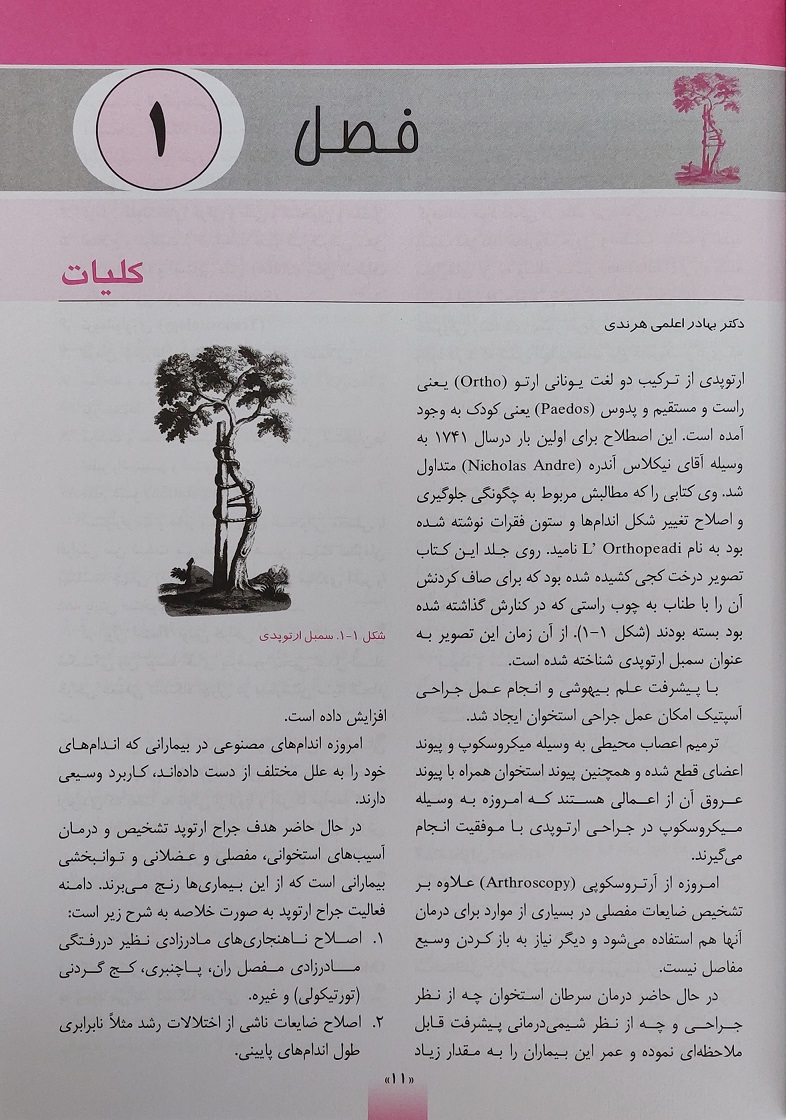 فصل
۱
کلیات
دکتر بهادر اعلمی هرندی
ارتوپدی از ترکیب دو لغت یونانی ارتو (Ortho) یعنی
راست و مستقیم و پدوس (Paedos) یعنی کودک به وجود
آمده است. این اصطلاح برای اولین بار درسال ۱۷۴۱ به
وسیله آقای نیکلاس آندره (Nicholas Andre) متداول
شد. وی کتابی را که مطالبش مربوط به چگونگی جلوگیری
و اصلاح تغییر شکل اندام‌ها و ستون فقرات نوشته شده
بود به نام L’ Orthopeadi نامید. روی جلد این کتاب
تصویر درخت کجی کشیده شده بود که برای صاف کردنش
آن را با طناب به چوب راستی که در کنارش گذاشته شده
بود بسته بودند (شکل ۱-۱). از آن زمان این تصویر به
عنوان سمبل ارتوپدی شناخته شده است.
با پیشرفت علم بیهوشی و انجام عمل جراحی
آسپتیک امکان عمل جراحی استخوان ایجاد شد.
ترمیم اعصاب محیطی به وسیله میکروسکوپ و پیوند
اعضای قطع شده و همچنین پیوند استخوان همراه با پیوند
عروق آن از اعمالی هستند که امروزه به وسیله
میکروسکوپ در جراحی ارتوپدی با موفقیت انجام
می‌گیرند.
امروزه از آرتروسکوپی (Arthroscopy) علاوه بر
تشخیص ضایعات مفصلی در بسیاری از موارد برای درمان
آنها هم استفاده می‌شود و دیگر نیاز به باز کردن وسیع
مفاصل نیست.
در حال حاضر درمان سرطان استخوان چه از نظر
جراحی و چه از نظر شیمی‌درمانی پیشرفت قابل
ملاحظه‌ای نموده و عمر این بیماران را به مقدار زیاد
شکل ۱-۱. سمبل ارتوپدی
افزایش داده است.
امروزه اندام‌های مصنوعی در بیمارانی که اندام‌های
خود را به علل مختلف از دست داده‌اند، کاربرد وسیعی
دارند.
در حال حاضر هدف جراح ارتوپد تشخیص و درمان
آسیب‌های استخوانی، مفصلی و عضلانی و توانبخشی
بیمارانی است که از این بیماری‌ها رنج می‌برند. دامنه
فعالیت جراح ارتوپد به صورت خلاصه به شرح زیر است:
۱. اصلاح ناهنجاری‌های مادرزادی نظیر دررفتگی
مادرزادی مفصل ران، پاچنبری، کج گردنی
(تورتیکولی) و غیره.
۲. اصلاح ضایعات ناشی از اختلالات رشد مثلاً نابرابری
طول اندام‌های پایینی.
«۱۱»